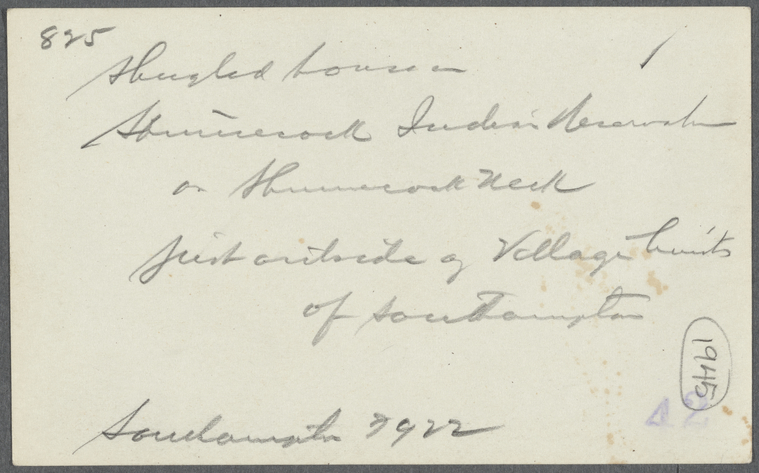 825
Shingled house on
Shinnecock Indian Reservation
on Shinnecock Neck
just outside of Village limits
of Southampton
1945
42
Southampton 2922